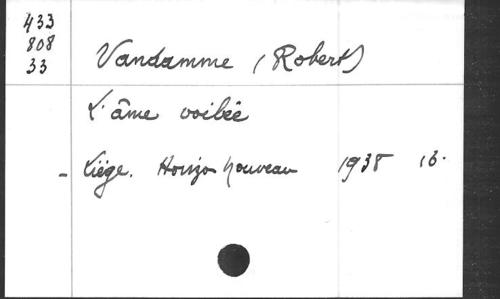 433
808
33
Vandamme (Robert)
L'âme voilée
- Liége. Horizon nouveau 1938 16.